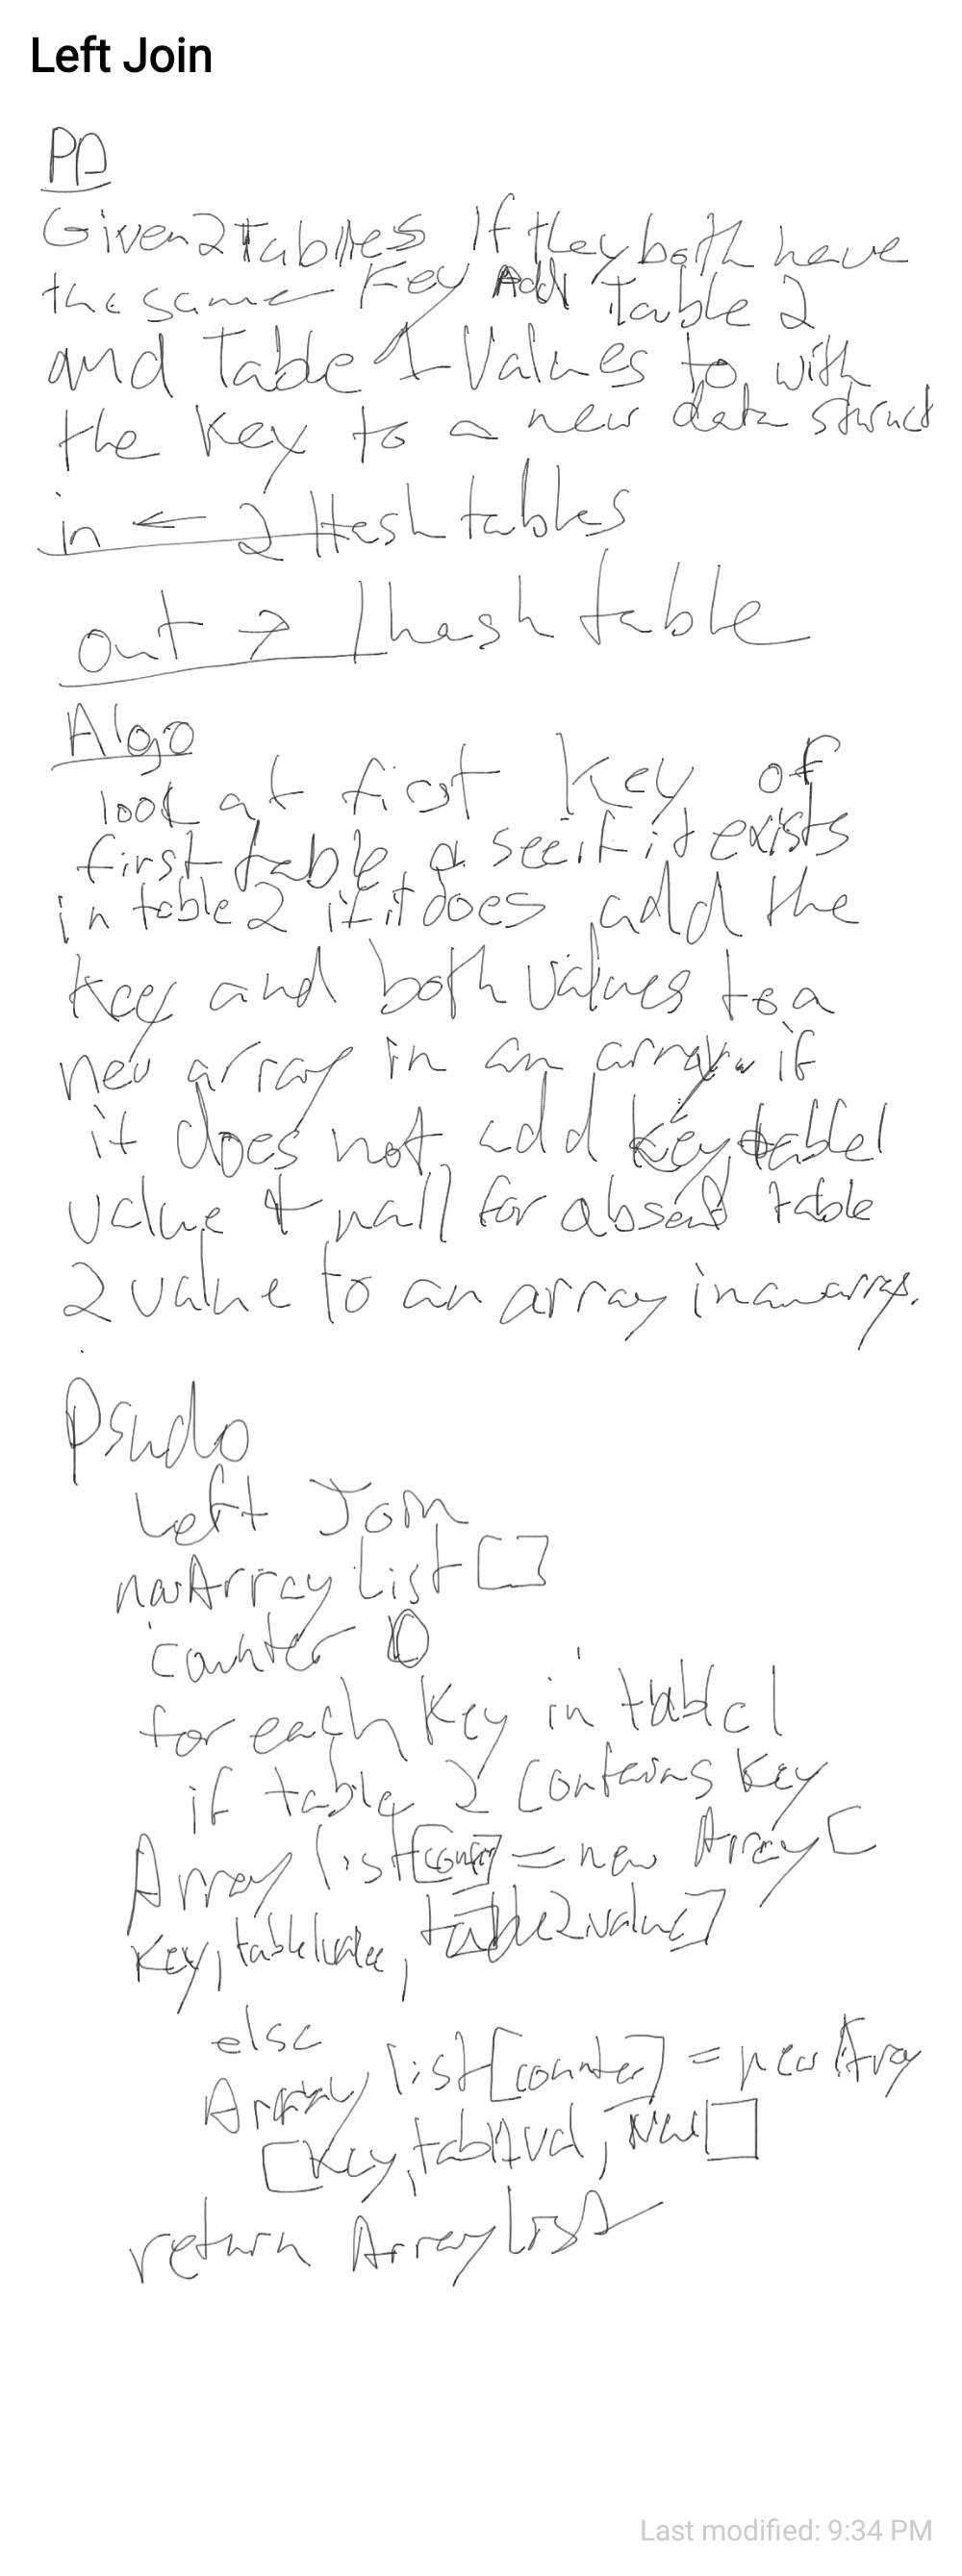 Left Join
PD
Given 2 Tables If they both have
the same Key Add Table 2
and Table 1 Values to with
the Key to a new data struct
in ← 2 Hash tables
out → 1 hash table
Algo
look at first key of
first table & see if it exists
in table 2 if it does add the
key and both values to a
new array in an array if
it does not add key, table1
value + null for absent table
2 value to an array in an array.
Psudo
Left Join
new Array list []
counter 0
for each Key in table1
if table 2 contains Key
Array list[counter] = new Array [
Key, table1value, table2value]
else
Array list[counter] = new Array
[Key, table1val, Null]
return Array list
Last modified: 9:34 PM